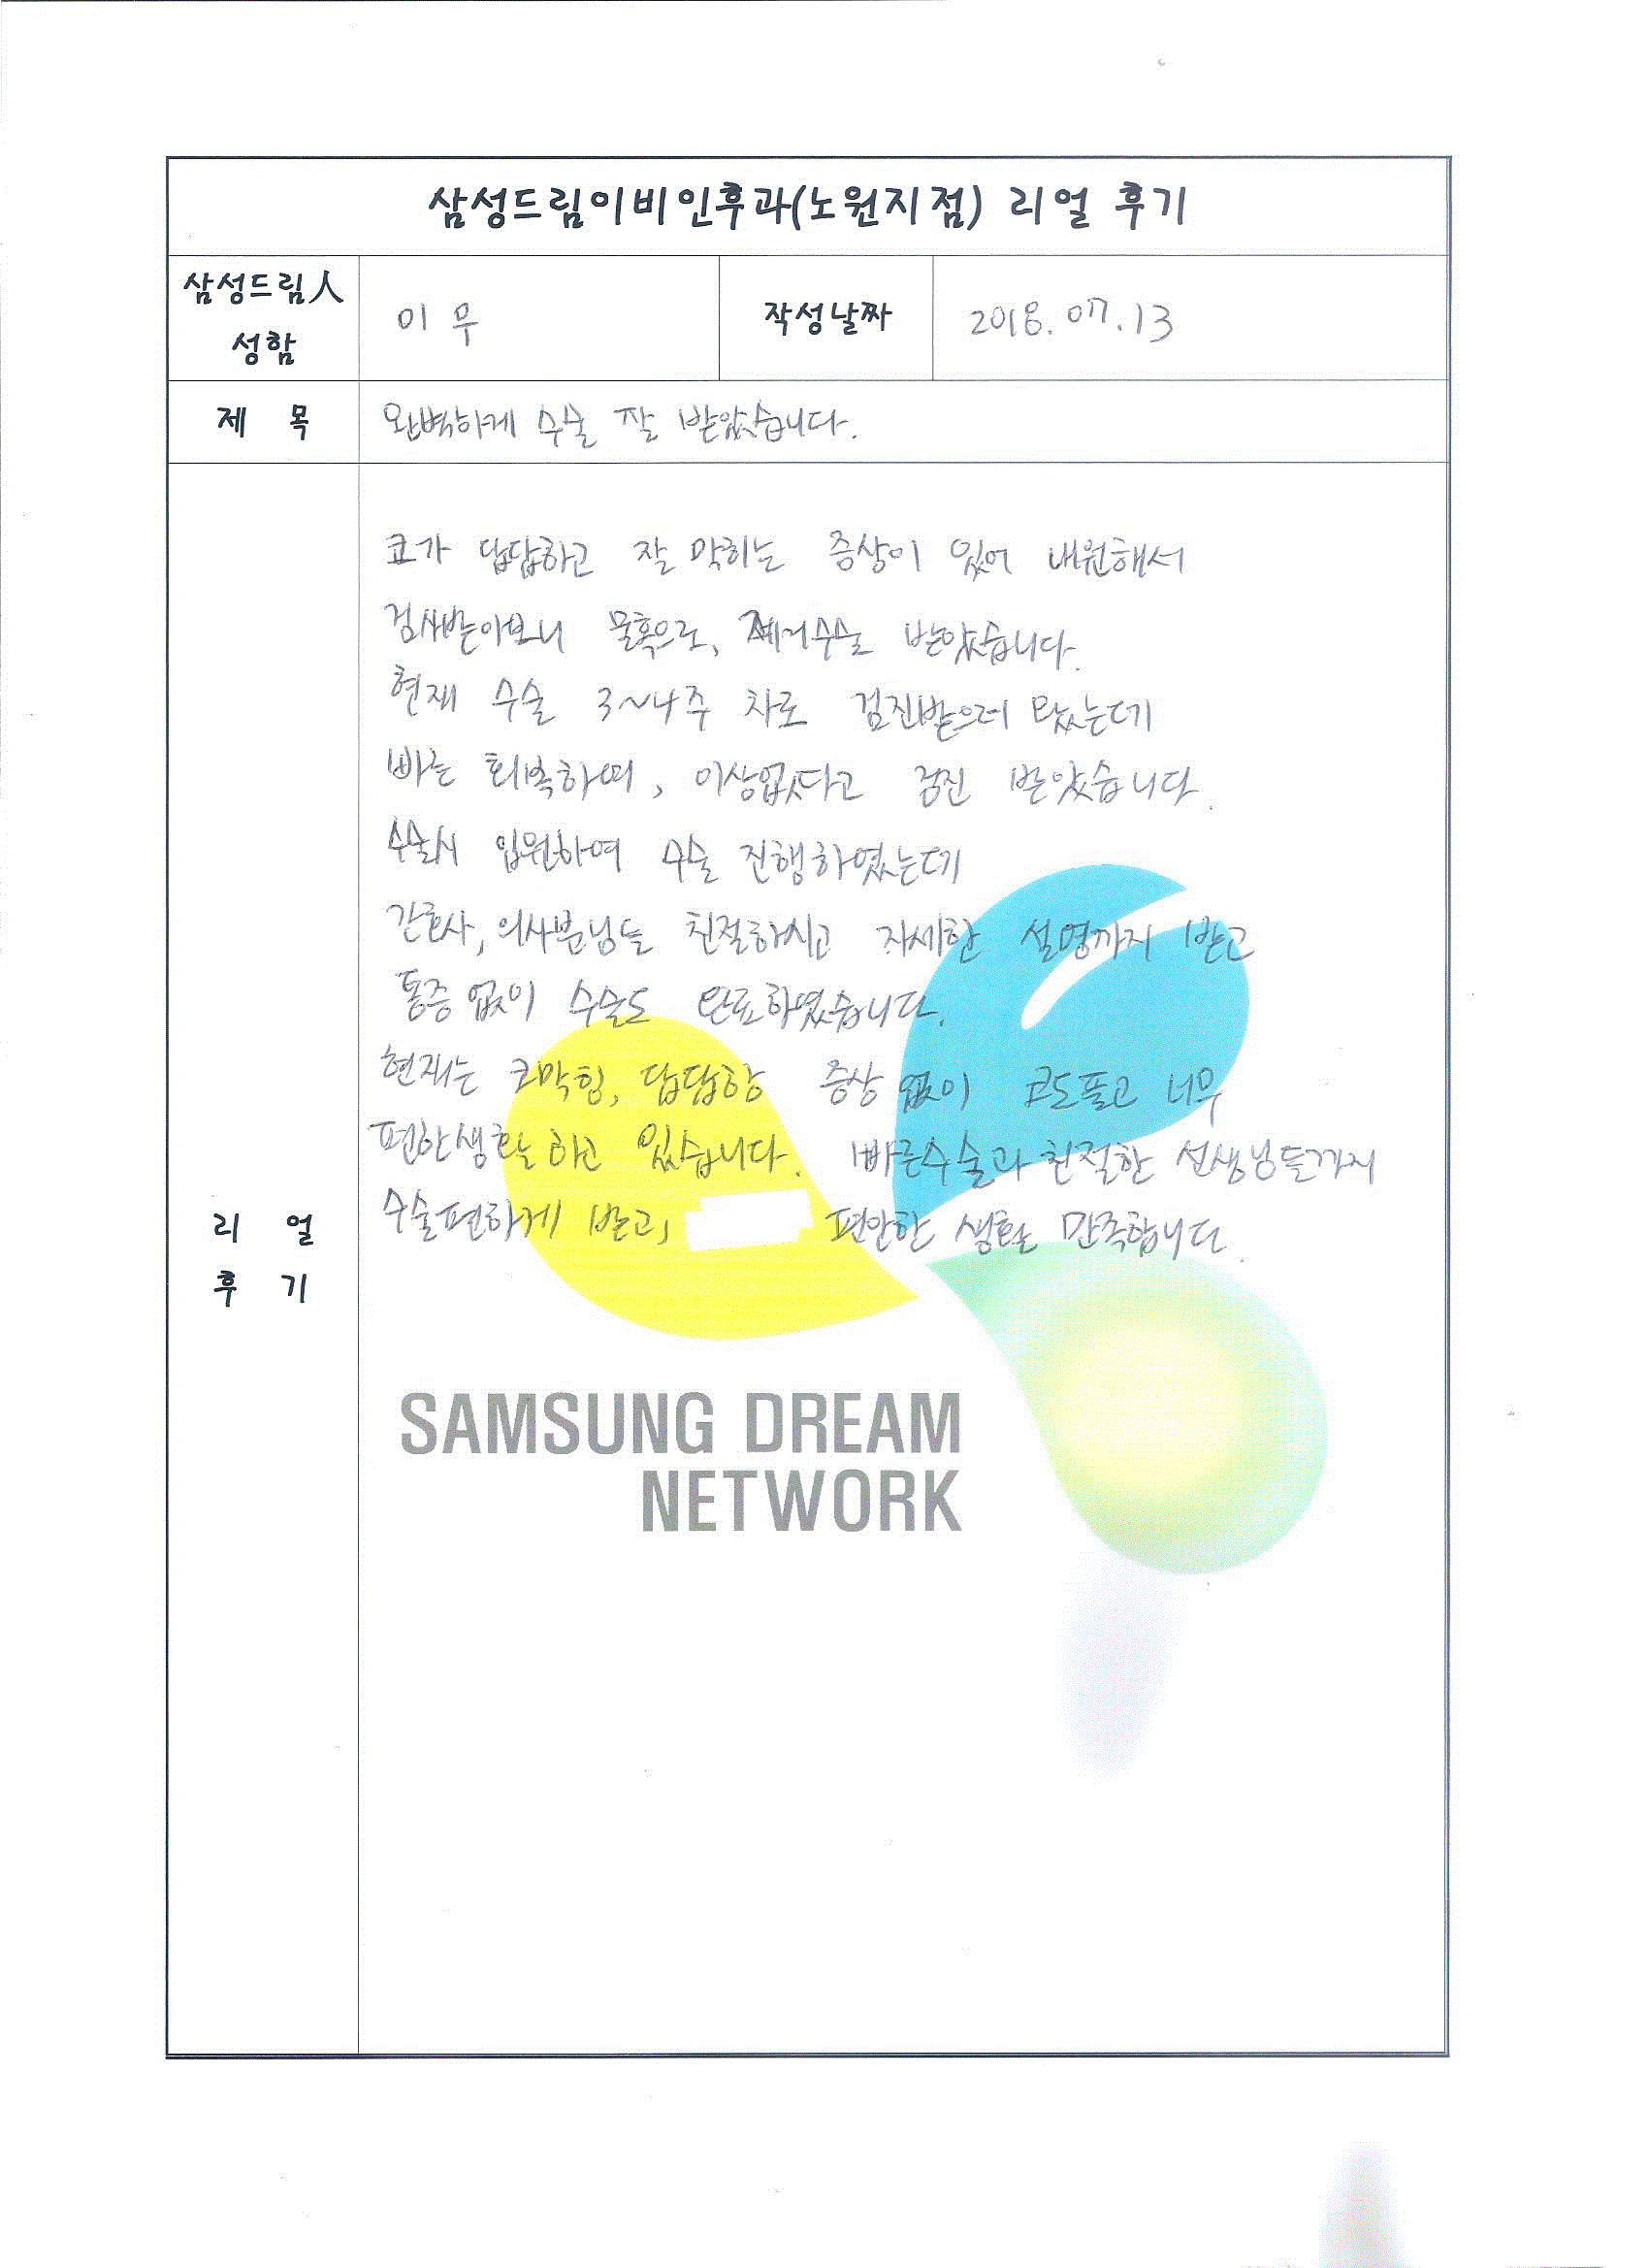 삼성드림이비인후과(노원지점) 리얼 후기
삼성드림人
성함
이우
작성날짜
2018.07.13
제 목
완벽하게 수술 잘 받았습니다.
코가 답답하고 잘 막히는 증상이 있어 내원해서
검사받아보니 물혹으로, 제거수술 받았습니다.
현재 수술 3~4주 차로 검진받으러 왔는데
빠른 회복하며, 이상없다고 검진 받았습니다.
수술시 입원하여 수술 진행하였는데
간호사, 의사분님들 친절하시고 자세한 설명까지 받고
통증 없이 수술도 완료하였습니다.
현재는 코막힘, 답답함 증상 없이 코도풀고 너무
편한생활 하고 있습니다. 빠른수술과 친절한 선생님들까지
수술편하게 받고, 편안한 생활 만족합니다.
리 얼
후 기
SAMSUNG DREAM
NETWORK